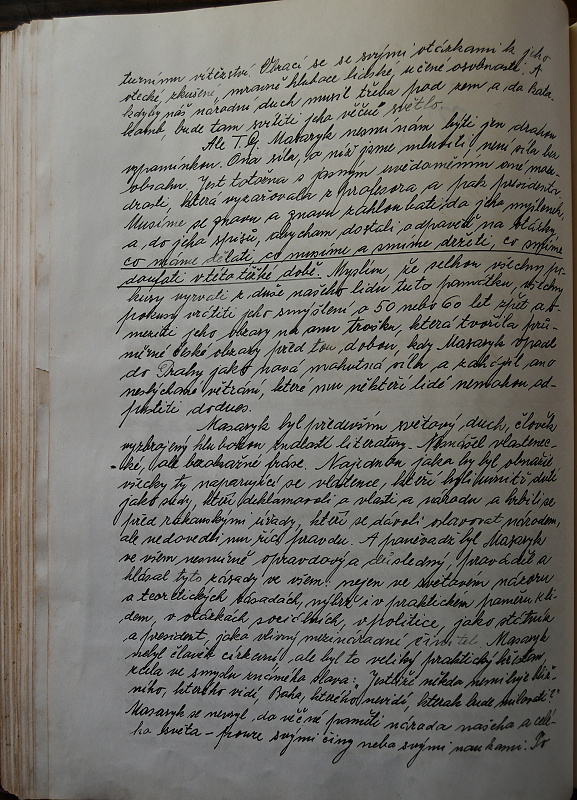 turnímu vítězství. Obrací se se svými otázkami k jeho
otecké, zkušené, mravně hluboce lidské, učené osobnosti. A
kdyby náš národní duch musil třeba pod zem a do kata-
komb, bude tam svítiti jeho věčné světlo.
Ale T. G. Masaryk nesmí nám býti jen drahou
vzpomínkou. Ona síla, o níž jsme mluvili, není síla bez
obsahu. Jest totožná s jasným uvědoměním oné mou-
drosti, která vyzařovala z profesora a pak presidenta.
Musíme se znovu a znovu zahloubati do jeho myšlenek,
a do jeho spisů, abychom dostali odpověď na otázky,
co máme dělati, co musíme a smíme držeti, co smíme
doufati v této těžké době. Myslím, že selhou všechny po-
kusy vyrvati z duše našeho lidu tuto památku, všechny
pokusy vrátiti jeho smýšlení o 50 nebo 60 let zpět a o-
meziti jeho obzory na onu trošku, která tvořila prů-
měrné české obzory před tou dobou, kdy Masaryk vpadl
do Prahy jako nová mohutná síla a zahájil ono
neslýchané větrání, které mu někteří lidé nemohou od-
pustiti dodnes.
Masaryk byl především světový duch, člověk
vyzbrojený hlubokou znalostí literatury. Nesnášel vlastenec-
ké, ale bezobsažné fráze. Najednou jako by byl obnažil
všecky ty naparující se vlastence, kteří byli uvnitř dutí
jako sudy, kteří deklamovali o vlasti a národu a hrbili se
před rakouskými úřady, kteří se dovoli oslavovat národem,
ale nedovedli mu říci pravdu. A poněvadž byl Masaryk
ve všem nesmírně opravdový a důsledný, prováděl a
hlásal tyto zásady ve všem: nejen ve světovém názoru
a teoretických zásadách, nýbrž i v praktickém poměru k li-
dem, v otázkách sociálních, v politice, jako státník
a president, jako vlivný mezinárodní činitel. Masaryk
nebyl člověk církevní, ale byl to veliký praktický křesťan,
zcela ve smyslu známého slova: "Jestliže někdo nemiluje bliž-
ního, kterého vidí, Boha, kterého nevidí, kterak bude milovati?"
Masaryk se nevryl do věčné paměti národa našeho a celé-
ho světa – pouze svými činy nebo svými naukami. To